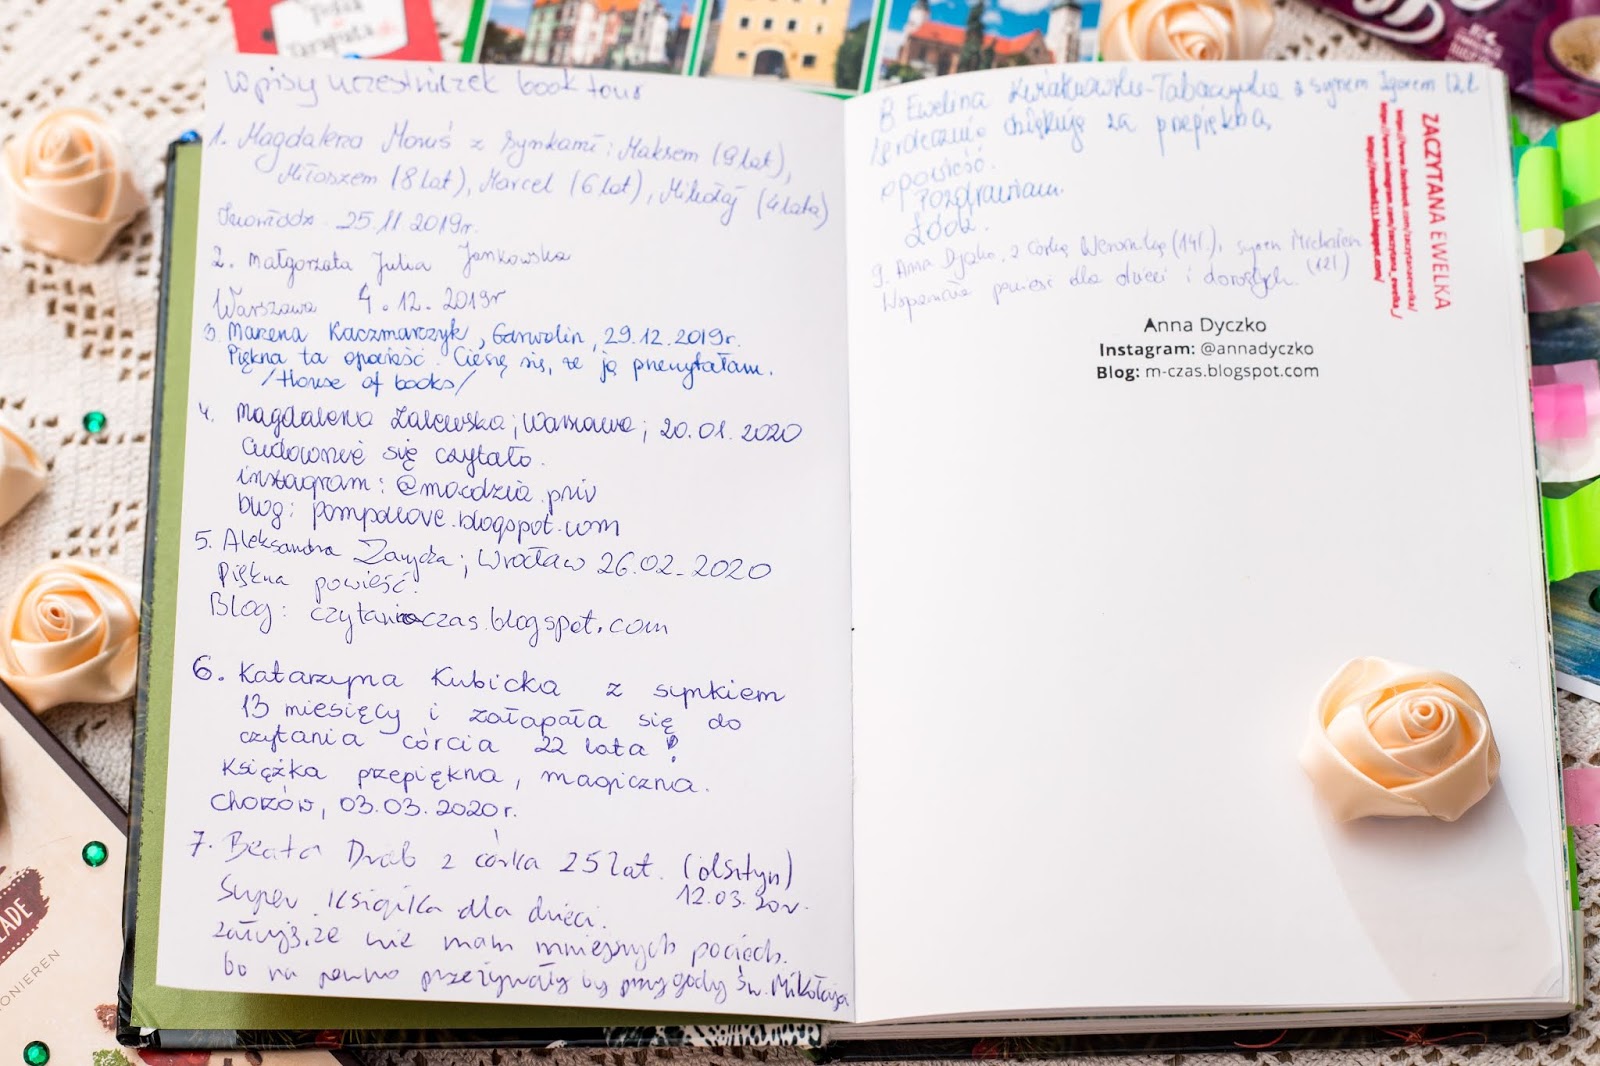 Wpisy uczestniczek book tour
1. Magdalena Moruś z Synkami: Maksem (9 lat),
Miłoszem (8 lat), Marcel (6 lat), Mikołaj (4 lata)
25.11.2019r.
2. Małgorzata Julia Jankowska
Warszawa 4.12.2019r
3. Marzena Kaczmarczyk, Garwolin, 29.12.2019r.
Piękna ta opowieść. Cieszę się, że ją przeczytałam.
/House of books/
4. Magdalena Zalewska; Warszawa; 20.01.2020
Cudownie się czytało.
instagram: @macdzia.priv
blog: pompollove.blogspot.com
5. Aleksandra Zawada; Wrocław 26.02.2020
Piękna powieść.
Blog: czytanioczas.blogspot.com
6. Katarzyna Kubicka z synkiem
13 miesięcy i załapała się do
czytania córcia 22 lata!
Książka przepiękna, magiczna.
Chorzów, 03.03.2020r.
7. Beata Drab z córka 25 lat. (olsztyn)
12.03.20r.
Super książka dla dzieci.
załuję, że nie mam mniejszych pociech.
bo na pewno przeżywały by przygody św. Mikołaja
8 Ewelina Kwiatkowska-Tabaczyńska z synem Igorem 12 l.
Serdecznie dziękuję za przepiękną
opowieść.
Pozdrawiam.
Łódź.
9. Anna Dyczko, z córką Weroniką (14l.), synem Michałem
(12l)
Wspaniała powieść dla dzieci i dorosłych.
Anna Dyczko
Instagram: @annadyczko
Blog: m-czas.blogspot.com
ZACZYTANA EWELKA